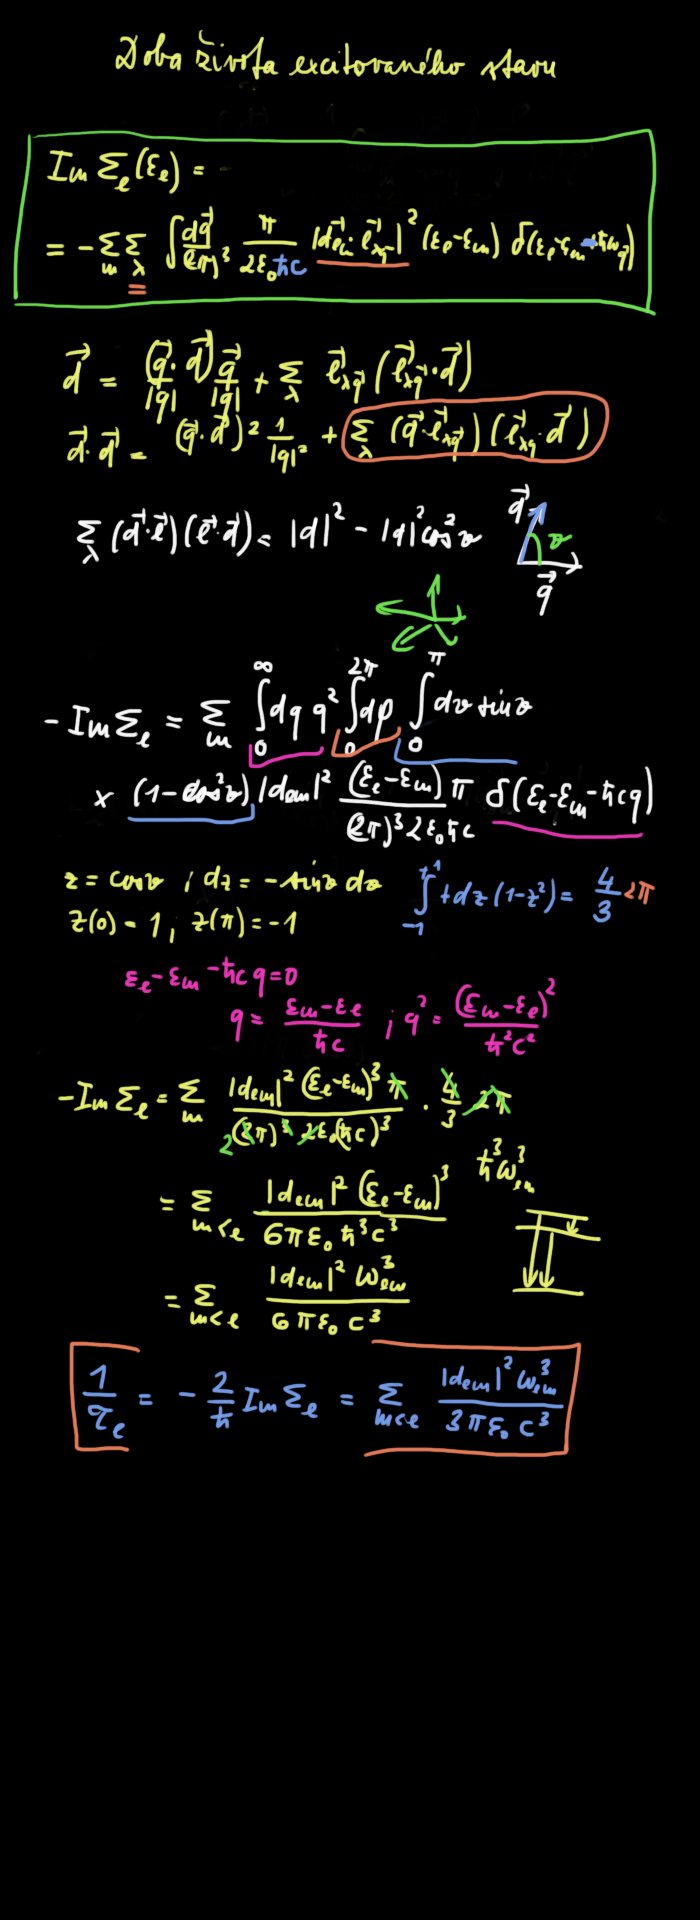 Doba života excitovaného stavu
Im Σ_e(ε_e) =
= - Σ_m Σ_λ ∫ dq⃗/(2π)³ π/(2ε₀ħc) |d⃗_em · e⃗_λq|² (ε_e - ε_m) δ(ε_e - ε_m - ħω_q)
d⃗ = (q⃗ · d⃗)/|q| q⃗/|q| + Σ_λ e⃗_λq⃗ (e⃗_λq⃗ · d⃗)
d⃗ · d⃗ = (q⃗ · d⃗)² 1/|q|² + Σ_λ (q⃗ · e⃗_λq⃗)(e⃗_λq · d⃗)
Σ_λ (d⃗ · e⃗)(e⃗ · d⃗) = |d|² - |d|² cos² ϑ
d⃗ ϑ
q⃗
- Im Σ_e = Σ_m ∫₀^∞ dq q² ∫₀^2π dφ ∫₀^π dϑ sin ϑ
× (1 - cos² ϑ) |d_em|² (ε_e - ε_m)/((2π)³ 2ε₀ħc) π δ(ε_e - ε_m - ħcq)
z = cos ϑ ; dz = - sin ϑ dϑ
∫_-1^+1 + dz (1 - z²) = 4/3 2π
z(0) = 1, z(π) = -1
ε_e - ε_m - ħc q = 0
q = (ε_m - ε_e)/(ħc) ; q² = (ε_m - ε_e)²/(ħ²c²)
- Im Σ_e = Σ_m |d_em|² (ε_e - ε_m)³ π/((2π)³ 2ε₀(ħc)³) · 4/3 2π
2
ħ³ω³_em
= Σ_m<e |d_em|² (ε_e - ε_m)³/(6πε₀ ħ³c³)
= Σ_m<e |d_em|² ω³_em/(6πε₀ c³)
1/τ_e = - 2/ħ Im Σ_e = Σ_m<e |d_em|² ω³_em/(3πε₀ c³)